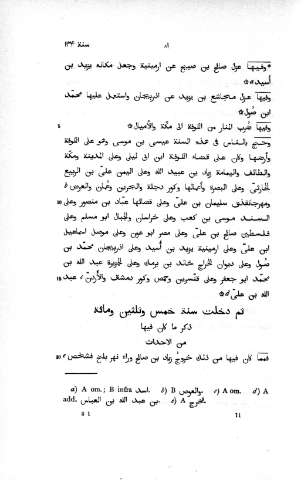 ٨١ سنة ١٣۴
*وفيها عزل صالح بن صبيح عن ارمينية وجعل مكانه يزيد بن
أسيد a ۞
وفيها عزل مجاشع بن يزيد عن اذربيجان واستعمل عليها محمد
ابن صول ۞
5 وفيها ضرب المنار من الكوفة الى مكة والأميال ۞
وحج بالناس فى هذه السنة عيسى بن موسى وهو على الكوفة
وأرضها وكان على قضاء الكوفة ابن ابى ليلى وعلى المدينة ومكة
والطائف واليمامة زياد بن عبيد الله وعلى اليمن على بن الربيع
الحارثى وعلى البصرة وأعمالها وكور دجلة والبحرين وعمان والعرض b
10 ومهرجانقذق سليمان بن على وعلى قضائها عباد بن منصور وعلى
السند موسى بن كعب وعلى خراسان والجبال ابو مسلم وعلى
فلسطين صالح بن على وعلى مصر ابو عون وعلى موصل اسماعيل
ابن على وعلى ارمينية يزيد بن أسيد وعلى اذربيجان محمد بن
صول وعلى ديوان الخراج خالد بن برمك وعلى الجزيرة عبد الله
15 محمد ابو جعفر وعلى قنسرين وحمص وكور دمشق والأردن عبد
الله بن على ۞
ثم دخلت سنة خمس وثلثين ومائة
ذكر ما كان فيها
من الاحداث
20 فمما كان فيها من ذلك خروج زياد بن صالح وراء نهر بلخ فشخص e
a) A om.; B infra اسد. b) B والعروض. c) A om. d) A
add. بن عبد الله بن العباس. e) A فخرج.